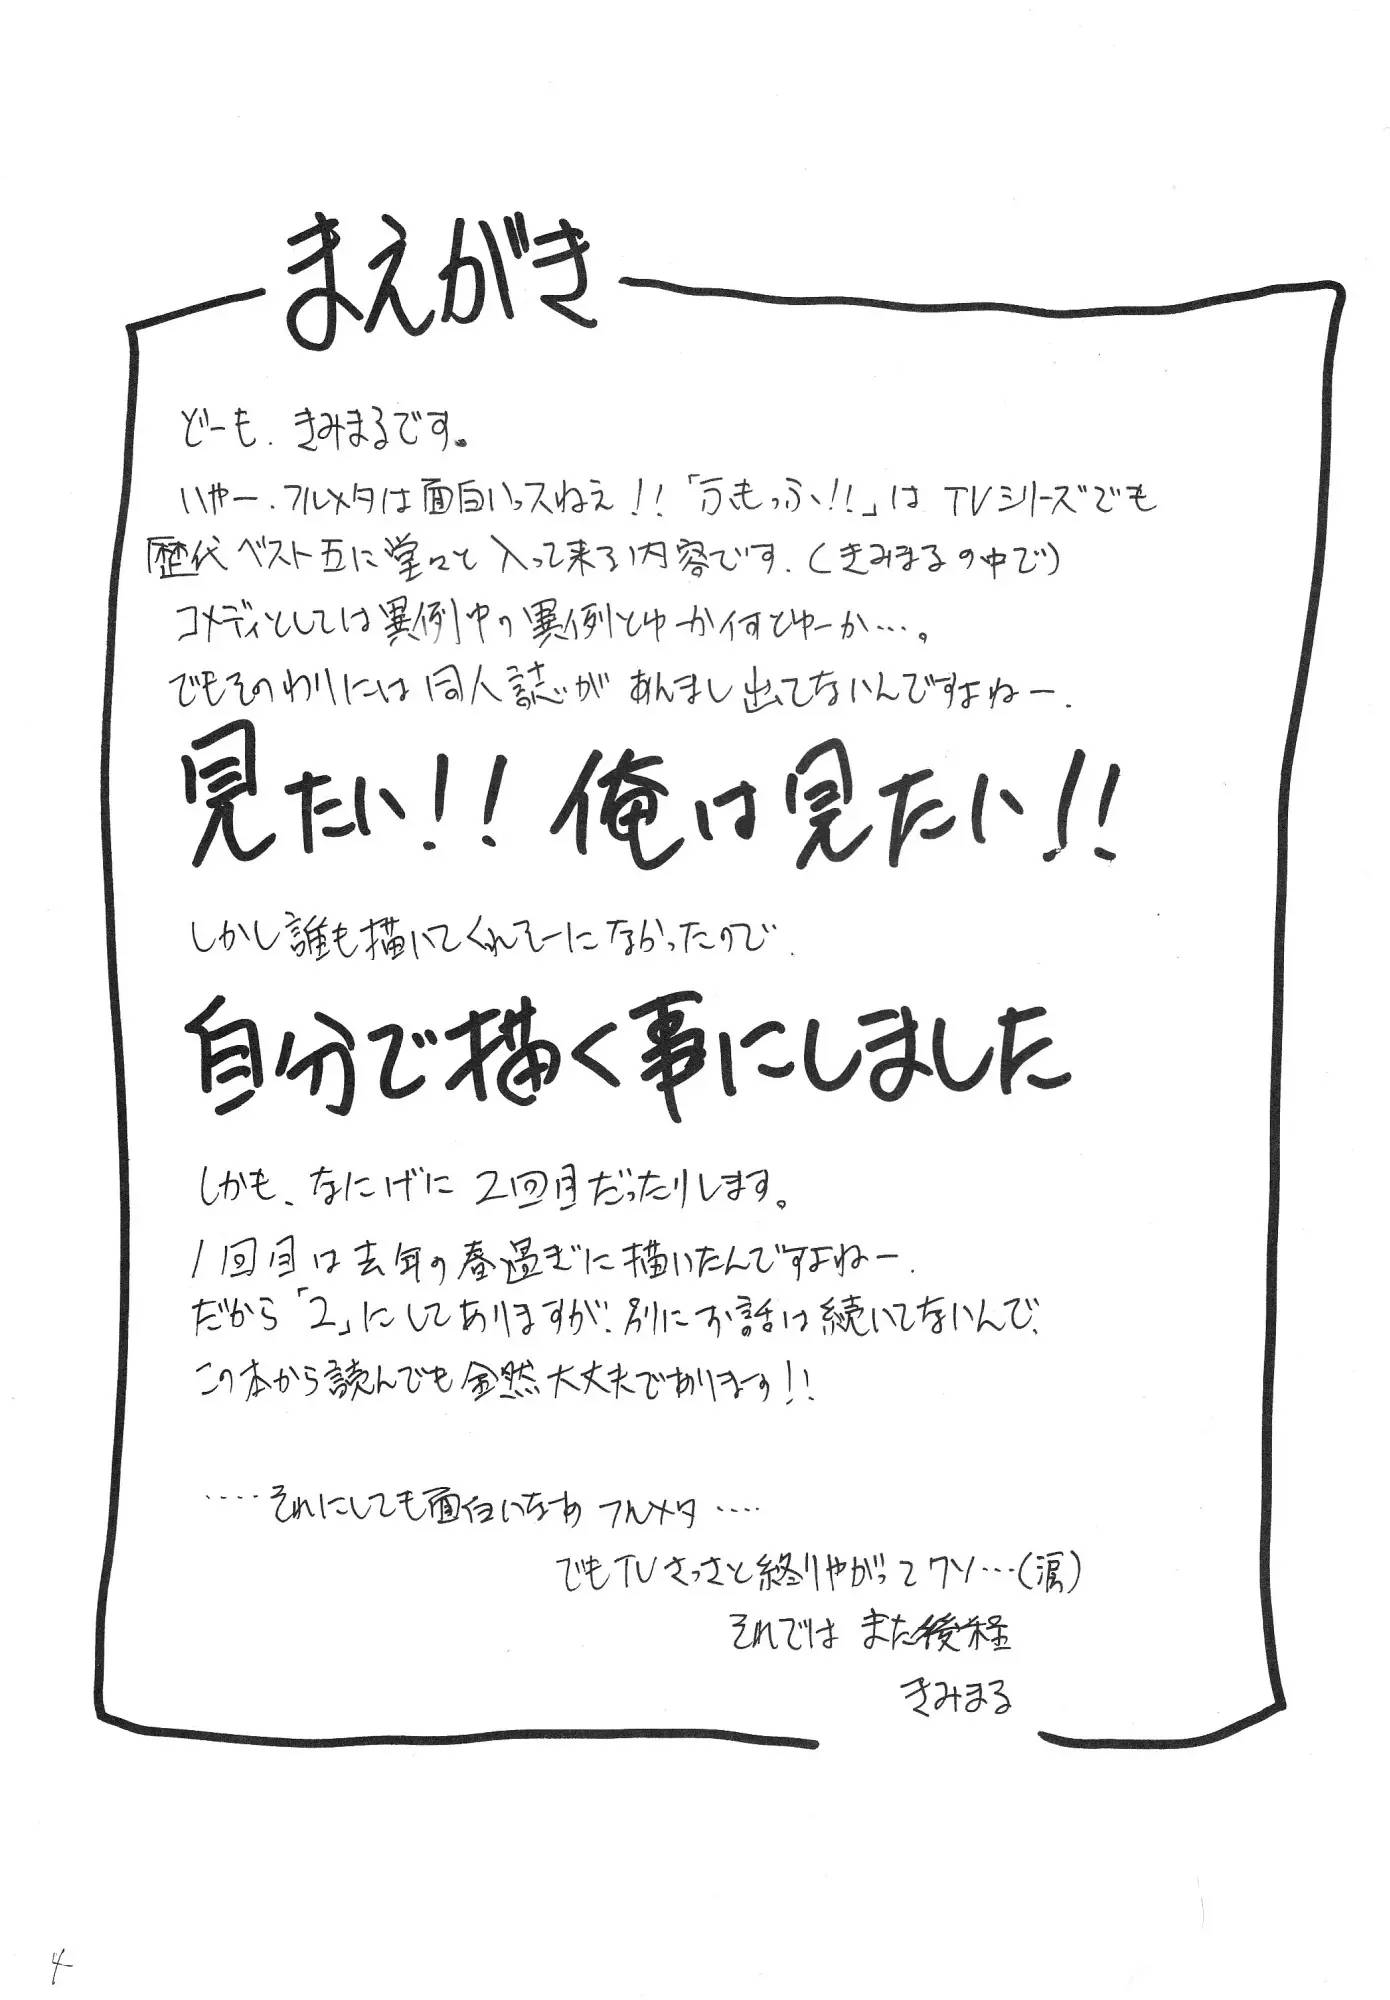 まえがき
どーも、きみまるです。
いやー、フルメタは面白いっスねぇ!!「ふもっふ!!」はTVシリーズでも
歴代ベスト五に堂々と入って来る内容です、(きみまるの中で)
コメディとしては異例中の異例とゆーか何とゆーか…。
でもそのわりには同人誌があんまし出てないんですよねー、
見たい!!俺は見たい!!
しかし誰も描いてくれそーになかったので、
自分で描く事にしました
しかも、なにげに2回目だったりします。
1回目は去年の春過ぎに描いたんですよねー、
だから「2」にしてありますが、別にお話は続いてないんで、
この本から読んでも全然大丈夫であります!!
……それにしても面白いなあフルメタ……
でもTVさっさと終りやがってクソ…(涙)
それではまた後程
きみまる
4